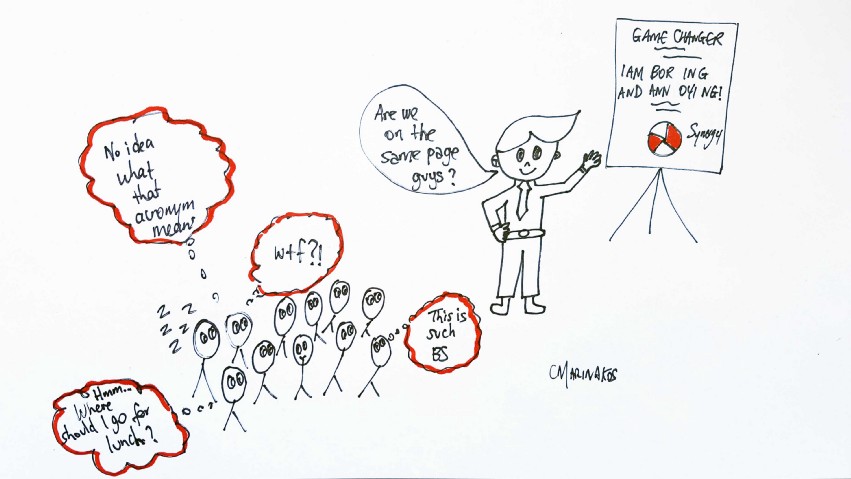 GAME CHANGER
I AM BOR ING
AND ANN OYING!
Synergy
Are we
on the
same page
guys?
No idea
what
that
acronym
means
wtf?!
z z
z z
z
This is
such
BS
Hmm...
Where
should I go for
lunch?
CMARINAKOS